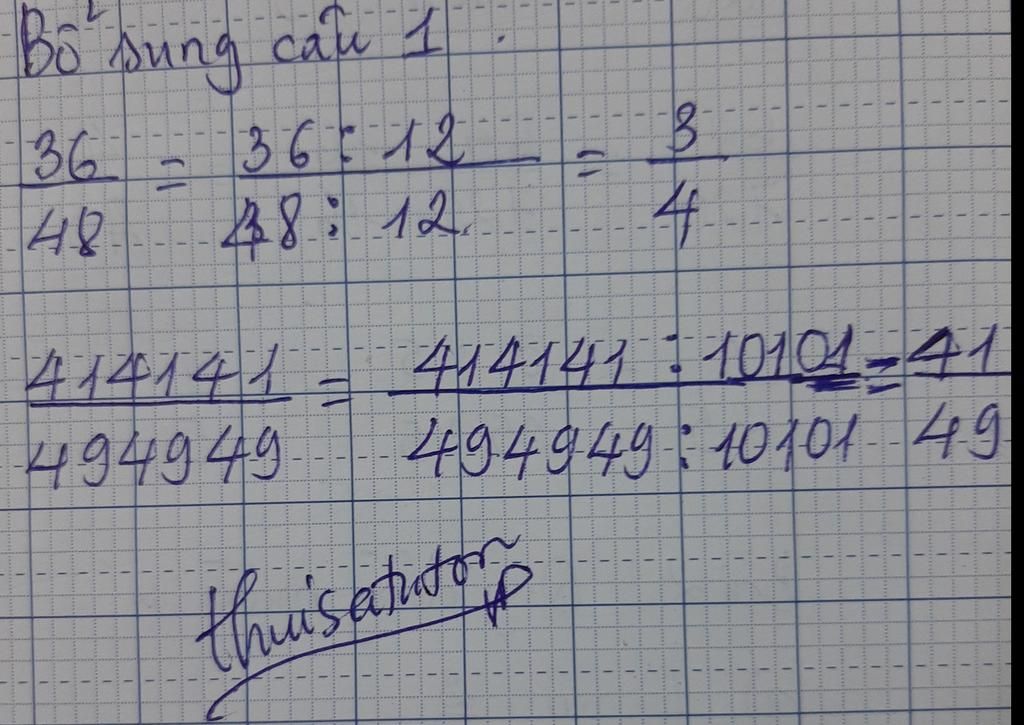 Bổ sung câu 1.
36/48 = 36 : 12/48 : 12. = 3/4
414141/494949 = 414141 : 10101/494949 : 10101 = 41/49
thuisatutor